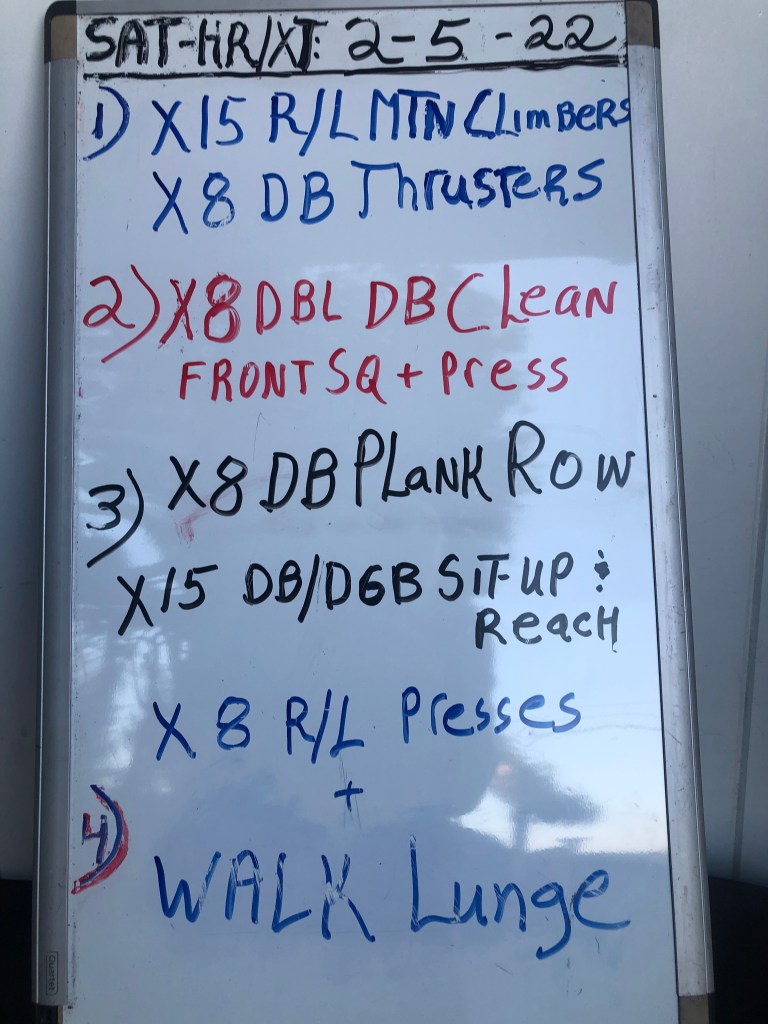 SAT-HR/XT: 2-5-22
1) X15 R/L MTN CLIMBERS
X8 DB ThrusTERS
2) X8 DBL DB CLeaN
FRONT SQ + Press
3) X8 DB PLaNK ROW
X15 DB/DGB SIT-UP &
ReacH
X 8 R/L Presses
+
4) WALK Lunge
Quartet